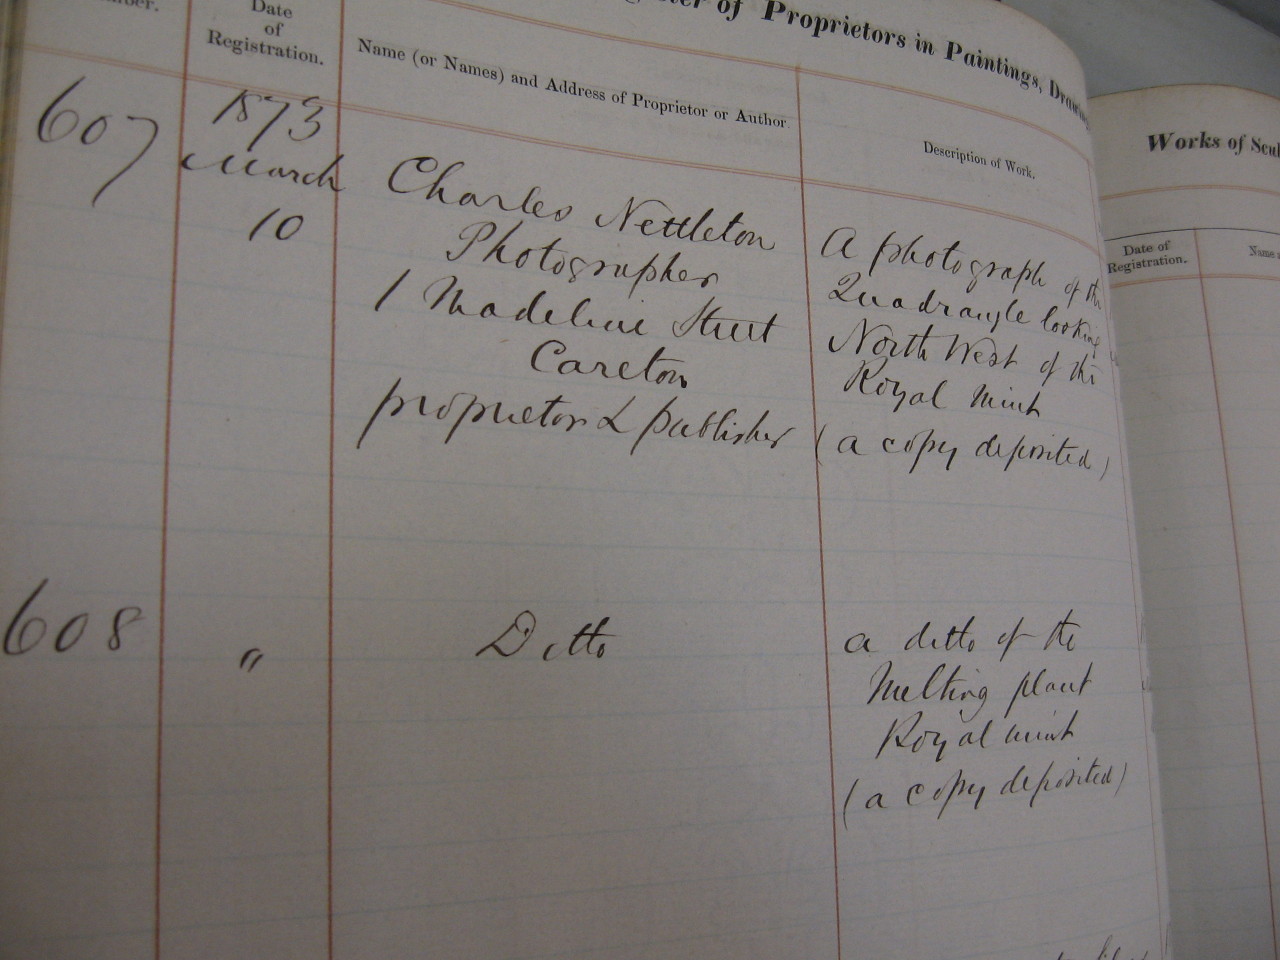 of Proprietors in Paintings,
Date
of
Registration.
Name (or Names) and Address of Proprietor or Author.
Description of Work.
607
1873
March
10
Charles Nettleton
Photographer
1 Madeline Street
Careton
proprietor & publisher
A photograph of the
Quadrangle looking
North West of the
Royal Mint
(a copy deposited)
608
"
Ditto
a ditto of the
Melting plant
Royal mint
(a copy deposited)
Works of
Date of
Registration.
Name